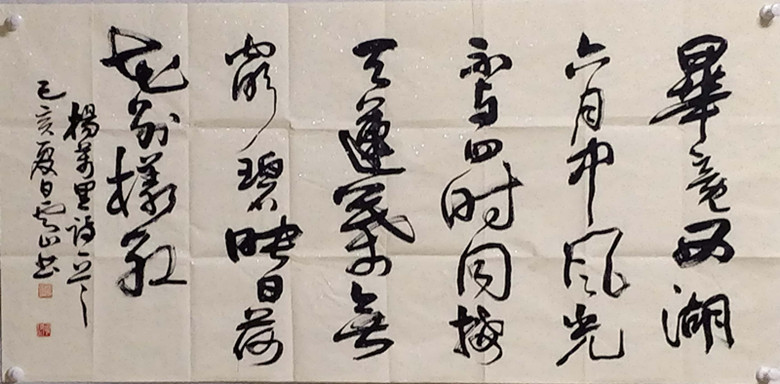 畢竟西湖
六月中風光
不与四时同接
天蓮葉無
窮碧映日荷
花別樣紅
楊萬里詩
己亥夏日雲山書